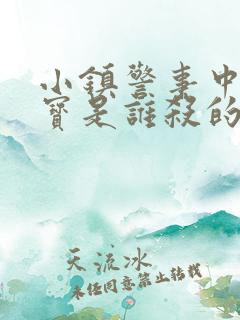 小鎮警事中
寶是誰殺的
天流冰
未经同意禁止转载